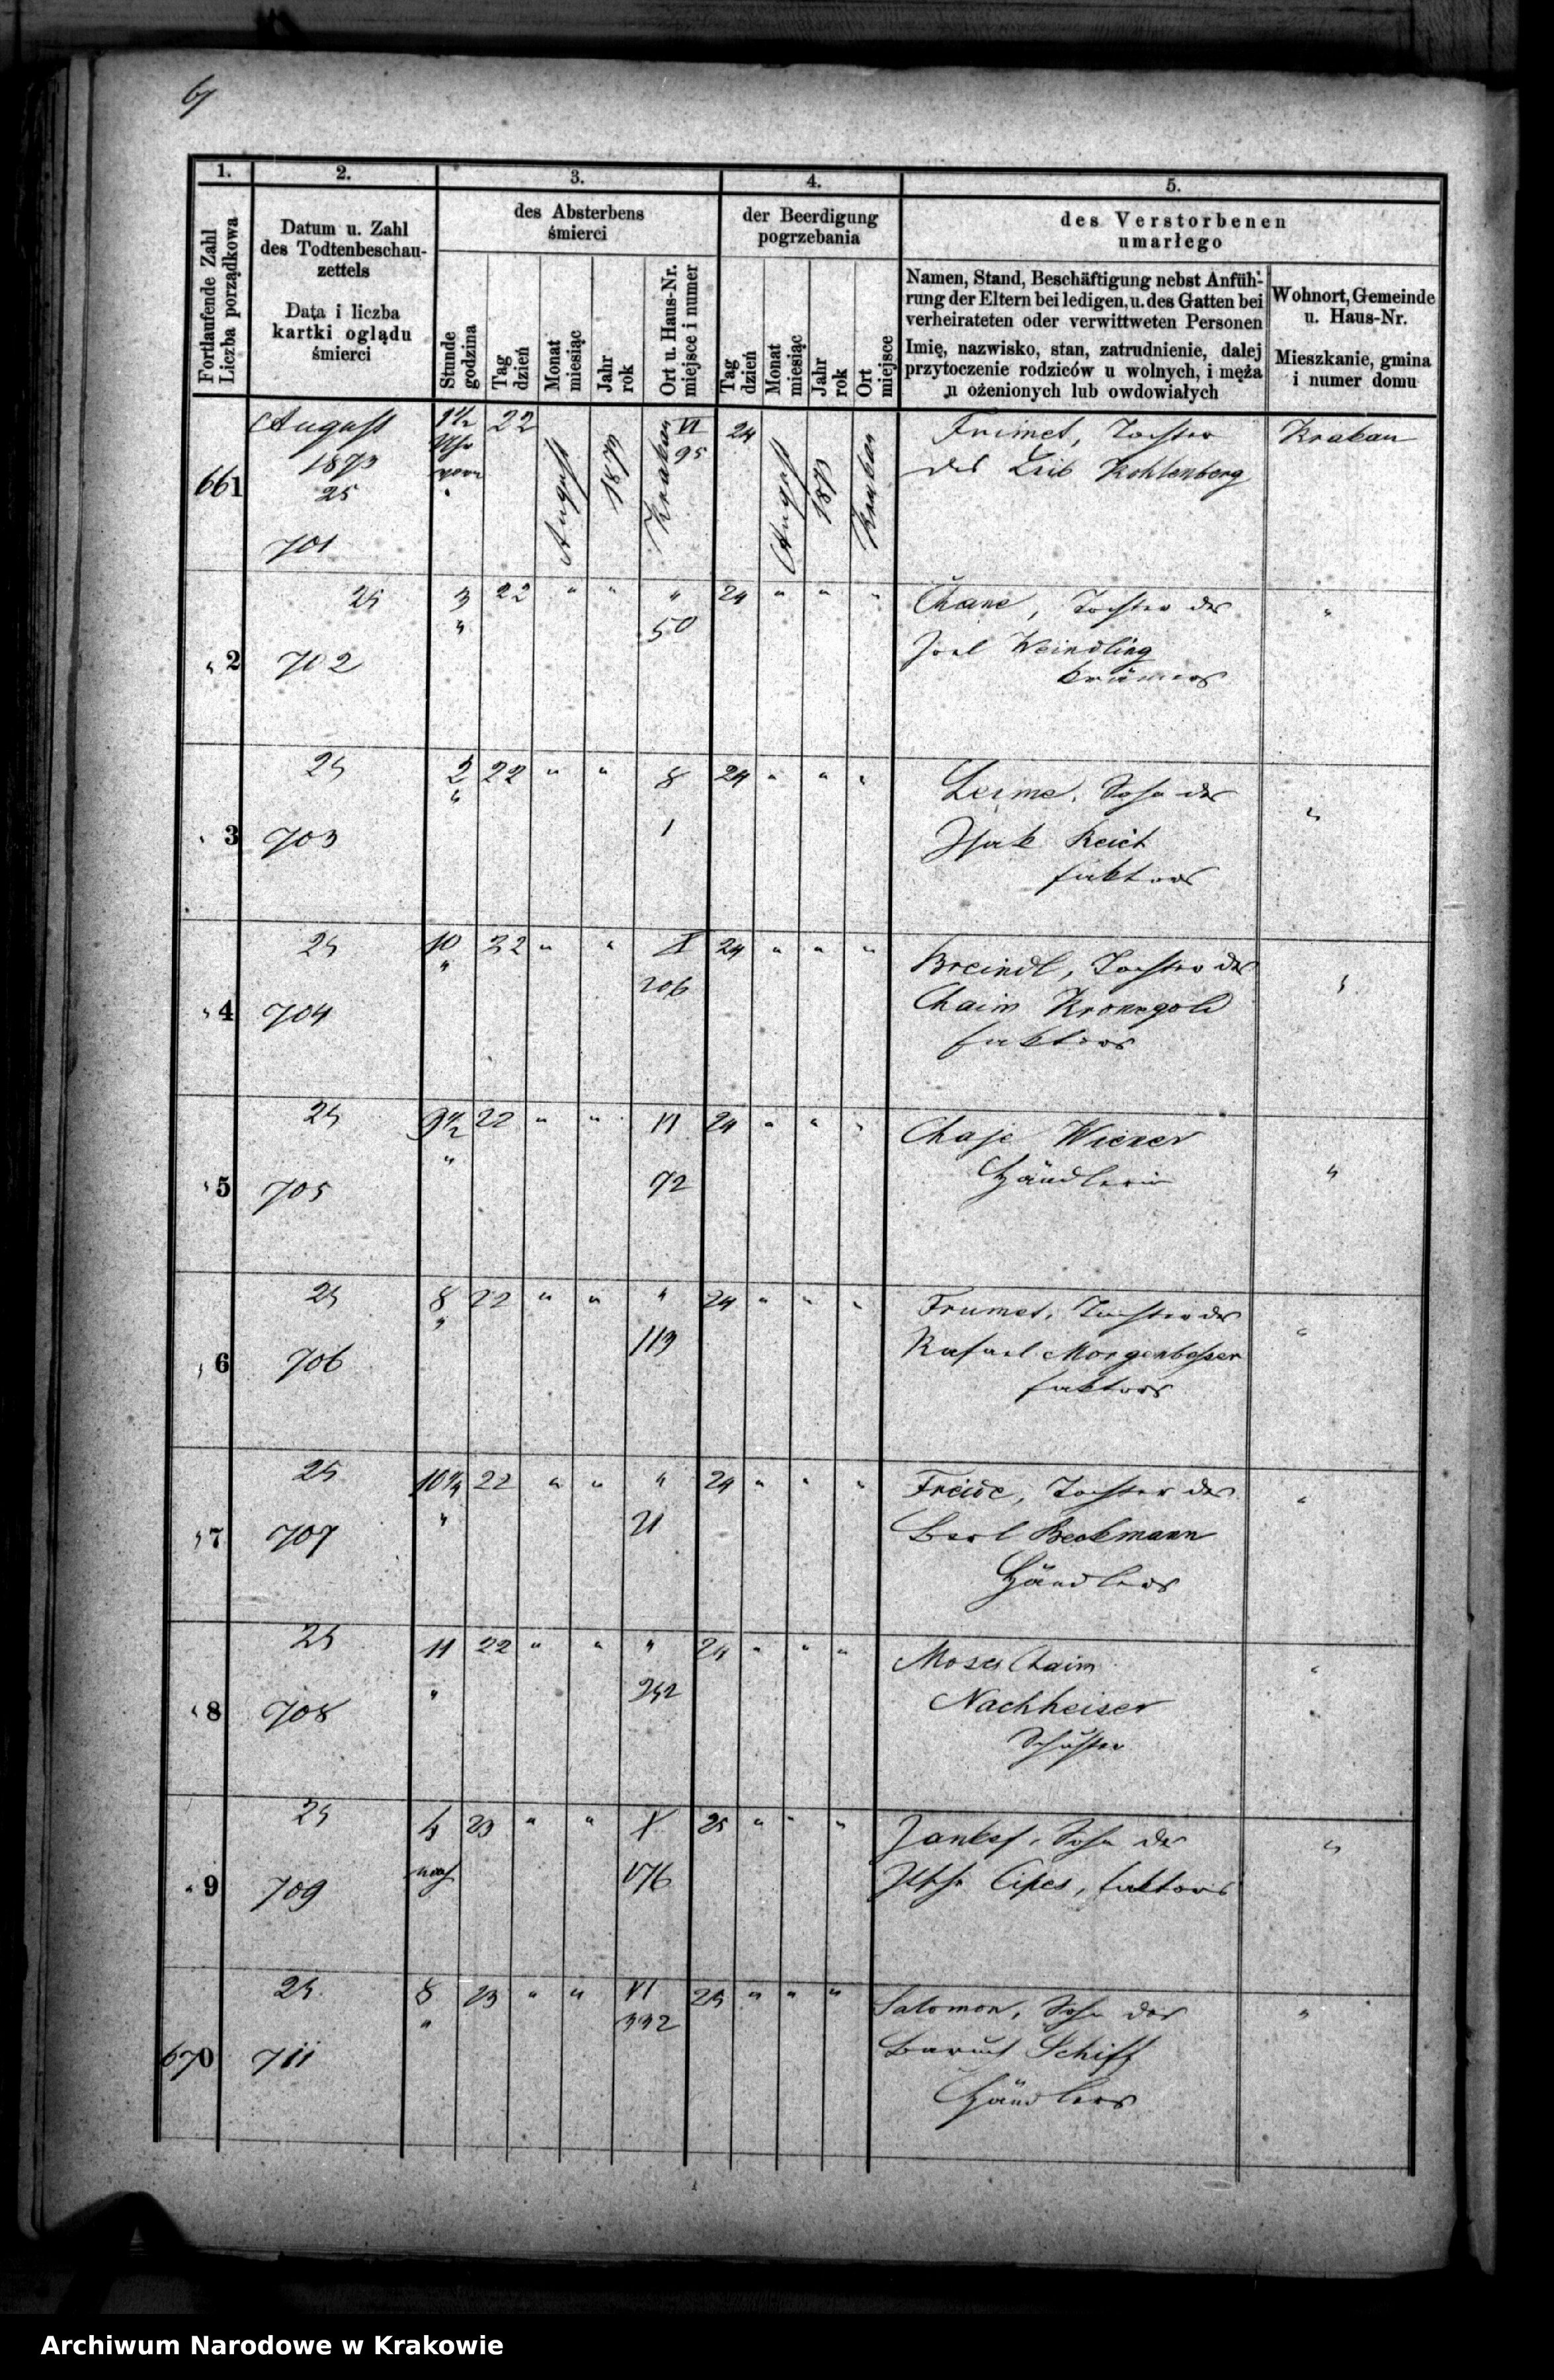 1. 2. 3. 4. 5.
Fortlaufende Zahl
Liczba porządkowa
Datum u. Zahl
des Todtenbeschau-
zettels
Data i liczba
kartki oglądu
śmierci
des Absterbens
śmierci
Stunde
godzina
Tag
dzień
Monat
miesiąc
Jahr
rok
Ort u. Haus-Nr.
miejsce i numer
der Beerdigung
pogrzebania
Tag
dzień
Monat
miesiąc
Jahr
rok
Ort
miejsce
des Verstorbenen
umarłego
Namen, Stand, Beschäftigung nebst Anfüh-
rung der Eltern bei ledigen, u. des Gatten bei
verheirateten oder verwittweten Personen
Imię, nazwisko, stan, zatrudnienie, dalej
przytoczenie rodziców u wolnych, i męża
u ożenionych lub owdowiałych
Wohnort, Gemeinde
u. Haus-Nr.
Mieszkanie, gmina
i numer domu
661 August 1873 25 701
Uhr 22 August 1873 Krakau VI 95
24 August 1873 Krakau
Frimet, Tochter
des Leib Kohlenberg
Krakau
" 2 25 702
3 " 22 " " " 50
24 " " "
Chane, Tochter des
Joel Weindling
Krämers
"
" 3 25 703
2 " 22 " " 8 1
24 " " "
Sohn des
Isak Reich
faktors
"
" 4 25 704
10 " 22 " " X 206
24 " " "
Breindl, Tochter des
Chaim Kronngold
faktors
"
" 5 25 705
9 1/2 " 22 " " VI 72
24 " " "
Chaje Wiener
Händlerin
"
" 6 25 706
8 " 22 " " " 113
24 " " "
Frumet, Tochter des
Rafael Morgenbesser
faktors
"
" 7 25 707
10 " 22 " " " 21
24 " " "
Freide, Tochter des
Berl Beckmann
Händlers
"
" 8 25 708
11 " 22 " " " 252
24 " " "
Moses Chaim
Nachheiser
Schuster
"
" 9 25 709
nach 23 " " X 176
25 " " "
Sohn des
Cipes, faktors
"
670 25 711
8 " 23 " " VI 332
25 " " "
Salomon, Sohn des
Baruch Schiff
Händlers
"
Archiwum Narodowe w Krakowie